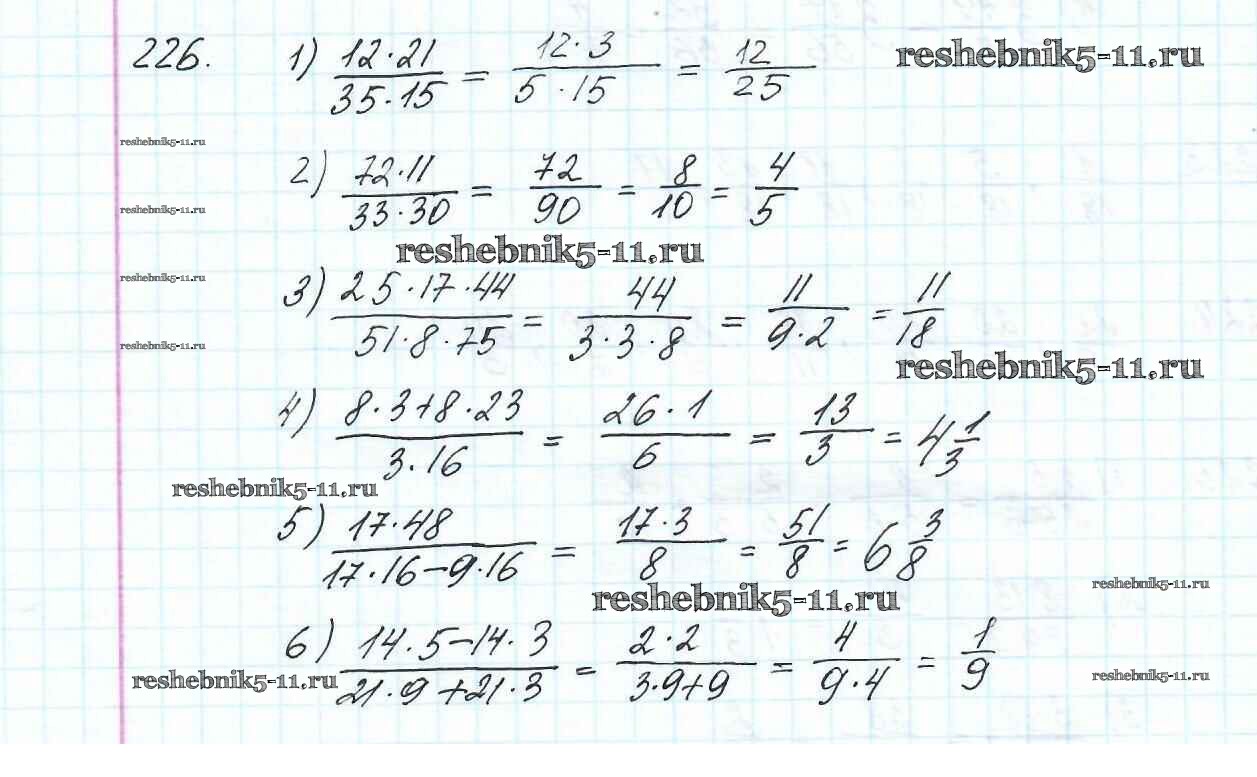 226. 1) 12·21/35·15 = 12·3/5·15 = 12/25
reshebnik5-11.ru
reshebnik5-11.ru
2) 72·11/33·30 = 72/90 = 8/10 = 4/5
reshebnik5-11.ru
reshebnik5-11.ru
reshebnik5-11.ru
3) 25·17·44/51·8·75 = 44/3·3·8 = 11/9·2 = 11/18
reshebnik5-11.ru
reshebnik5-11.ru
4) 8·3+8·23/3·16 = 26·1/6 = 13/3 = 4 1/3
reshebnik5-11.ru
5) 17·48/17·16-9·16 = 17·3/8 = 51/8 = 6 3/8
reshebnik5-11.ru
reshebnik5-11.ru
6) 14·5-14·3/21·9+21·3 = 2·2/3·9+9 = 4/9·4 = 1/9
reshebnik5-11.ru
reshebnik5-11.ru